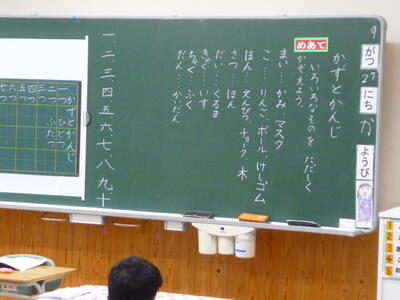 9
がつ
27
にち
か
ようび
かずとかんじ
めあて
いろいろなものを ただしく
かぞえよう。
まい…かみ、マスク
こ…りんご、ボール、けしゴム
ほん…えんぴつ、チョーク、木
さつ…ほん
だい…くるま
きゃく…いす
ちゃく…ふく
だん…かいだん
一、二、三、四、五、六、七、八、九、十
かずとかんじ
一つ ひとつ
二つ ふたつ
三つ
四つ
五つ
六つ
七つ
1
2
3
4
5